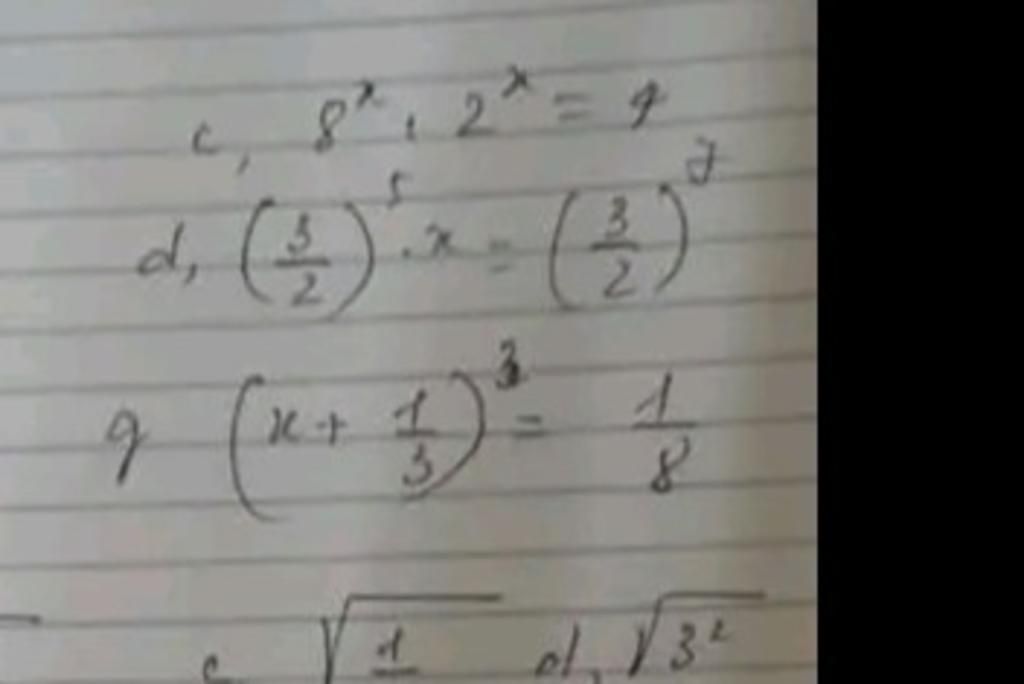 c, 8^x : 2^x = 4
d, (3/2)^5 . x = (3/2)^7
g (x + 1/3)^3 = 1/8
c √1 d, √3²